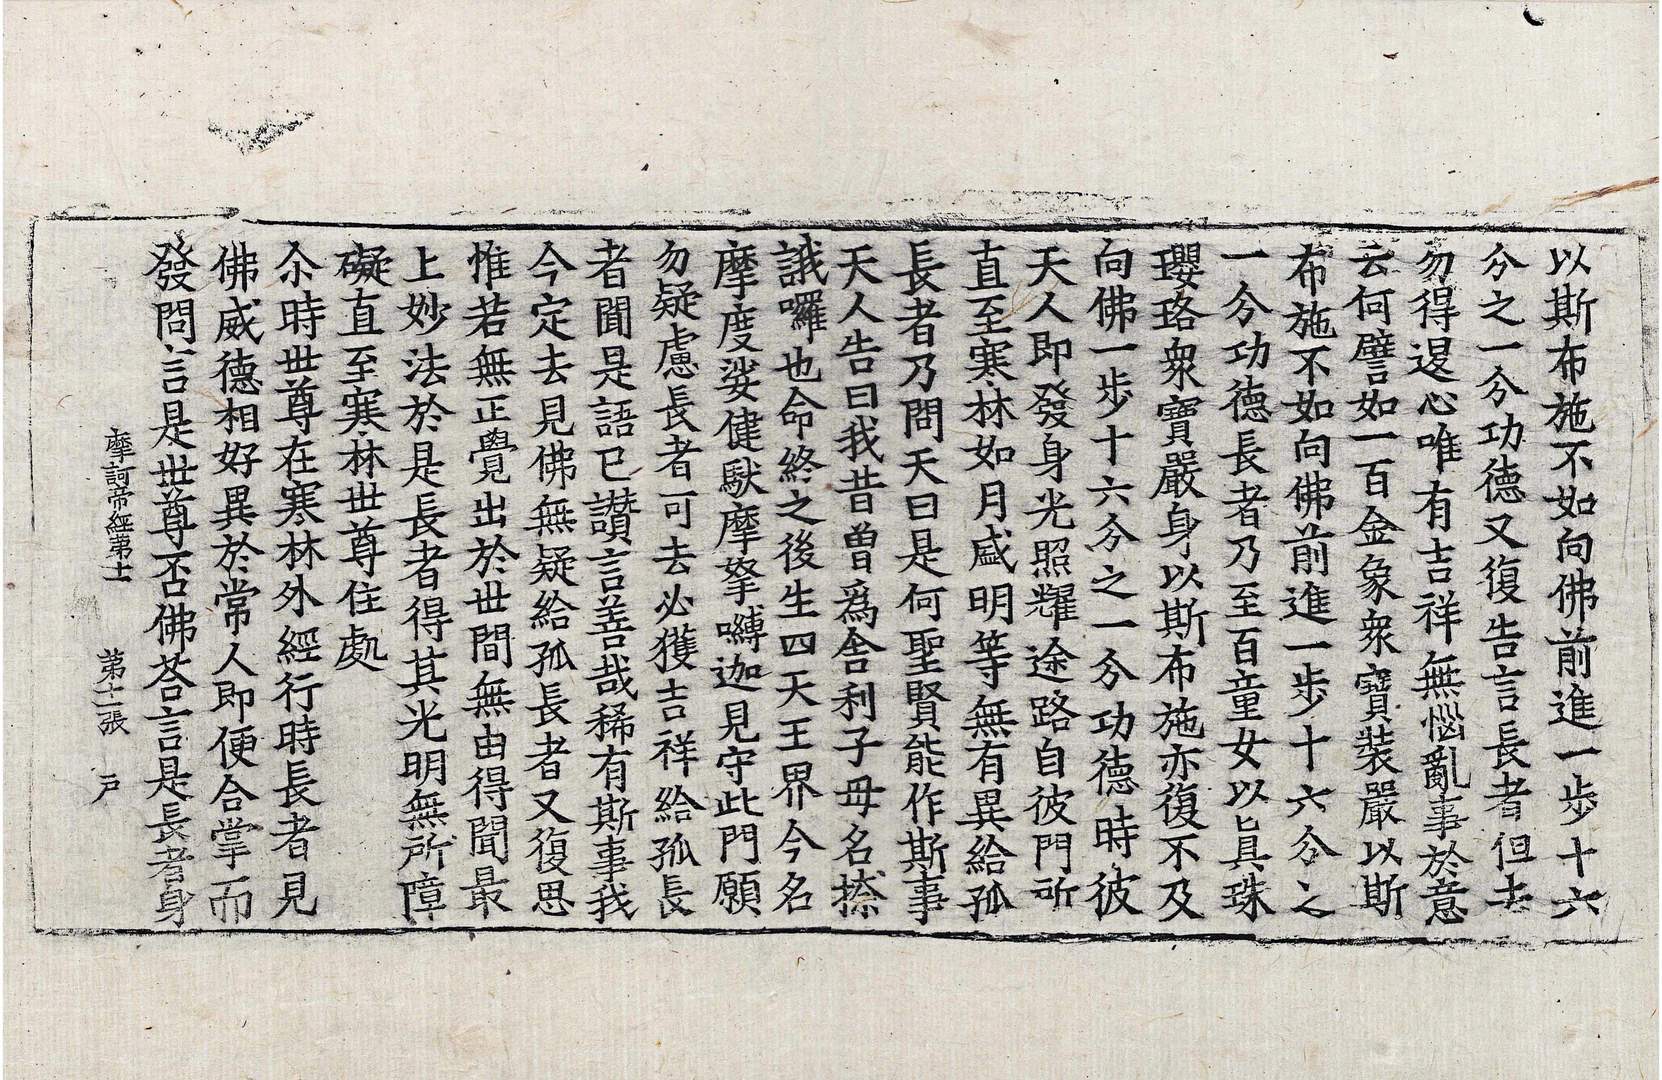 以斯布施不如向佛前進一步十六
分之一分功德又復告言長者但去
勿得退心唯有吉祥無惱亂事於意
云何譬如一百金象衆寶裝嚴以斯
布施不如向佛前進一步十六分之
一分功德長者乃至百童女以真珠
瓔珞衆寶嚴身以斯布施亦復不及
向佛一步十六分之一分功德時彼
天人即發身光照耀途路自彼門所
直至寒林如月盛明等無有異給孤
長者乃問天曰是何聖賢能作斯事
天人告曰我昔曽爲舍利子母名捺
誐囉也命終之後生四天王界今名
摩度娑健馱摩拏嚩迦見守此門願
勿疑慮長者可去必獲吉祥給孤長
者聞是語已讃言善哉稀有斯事我
今定去見佛無疑給孤長者又復思
惟若無正覺出於世間無由得聞最
上妙法於是長者得其光明無所障
礙直至寒林世尊住處
尒時世尊在寒林外經行時長者見
佛威德相好異於常人即便合掌而
發問言是世尊否佛荅言是長者身
摩訶帝經第十一 第十二張 戸